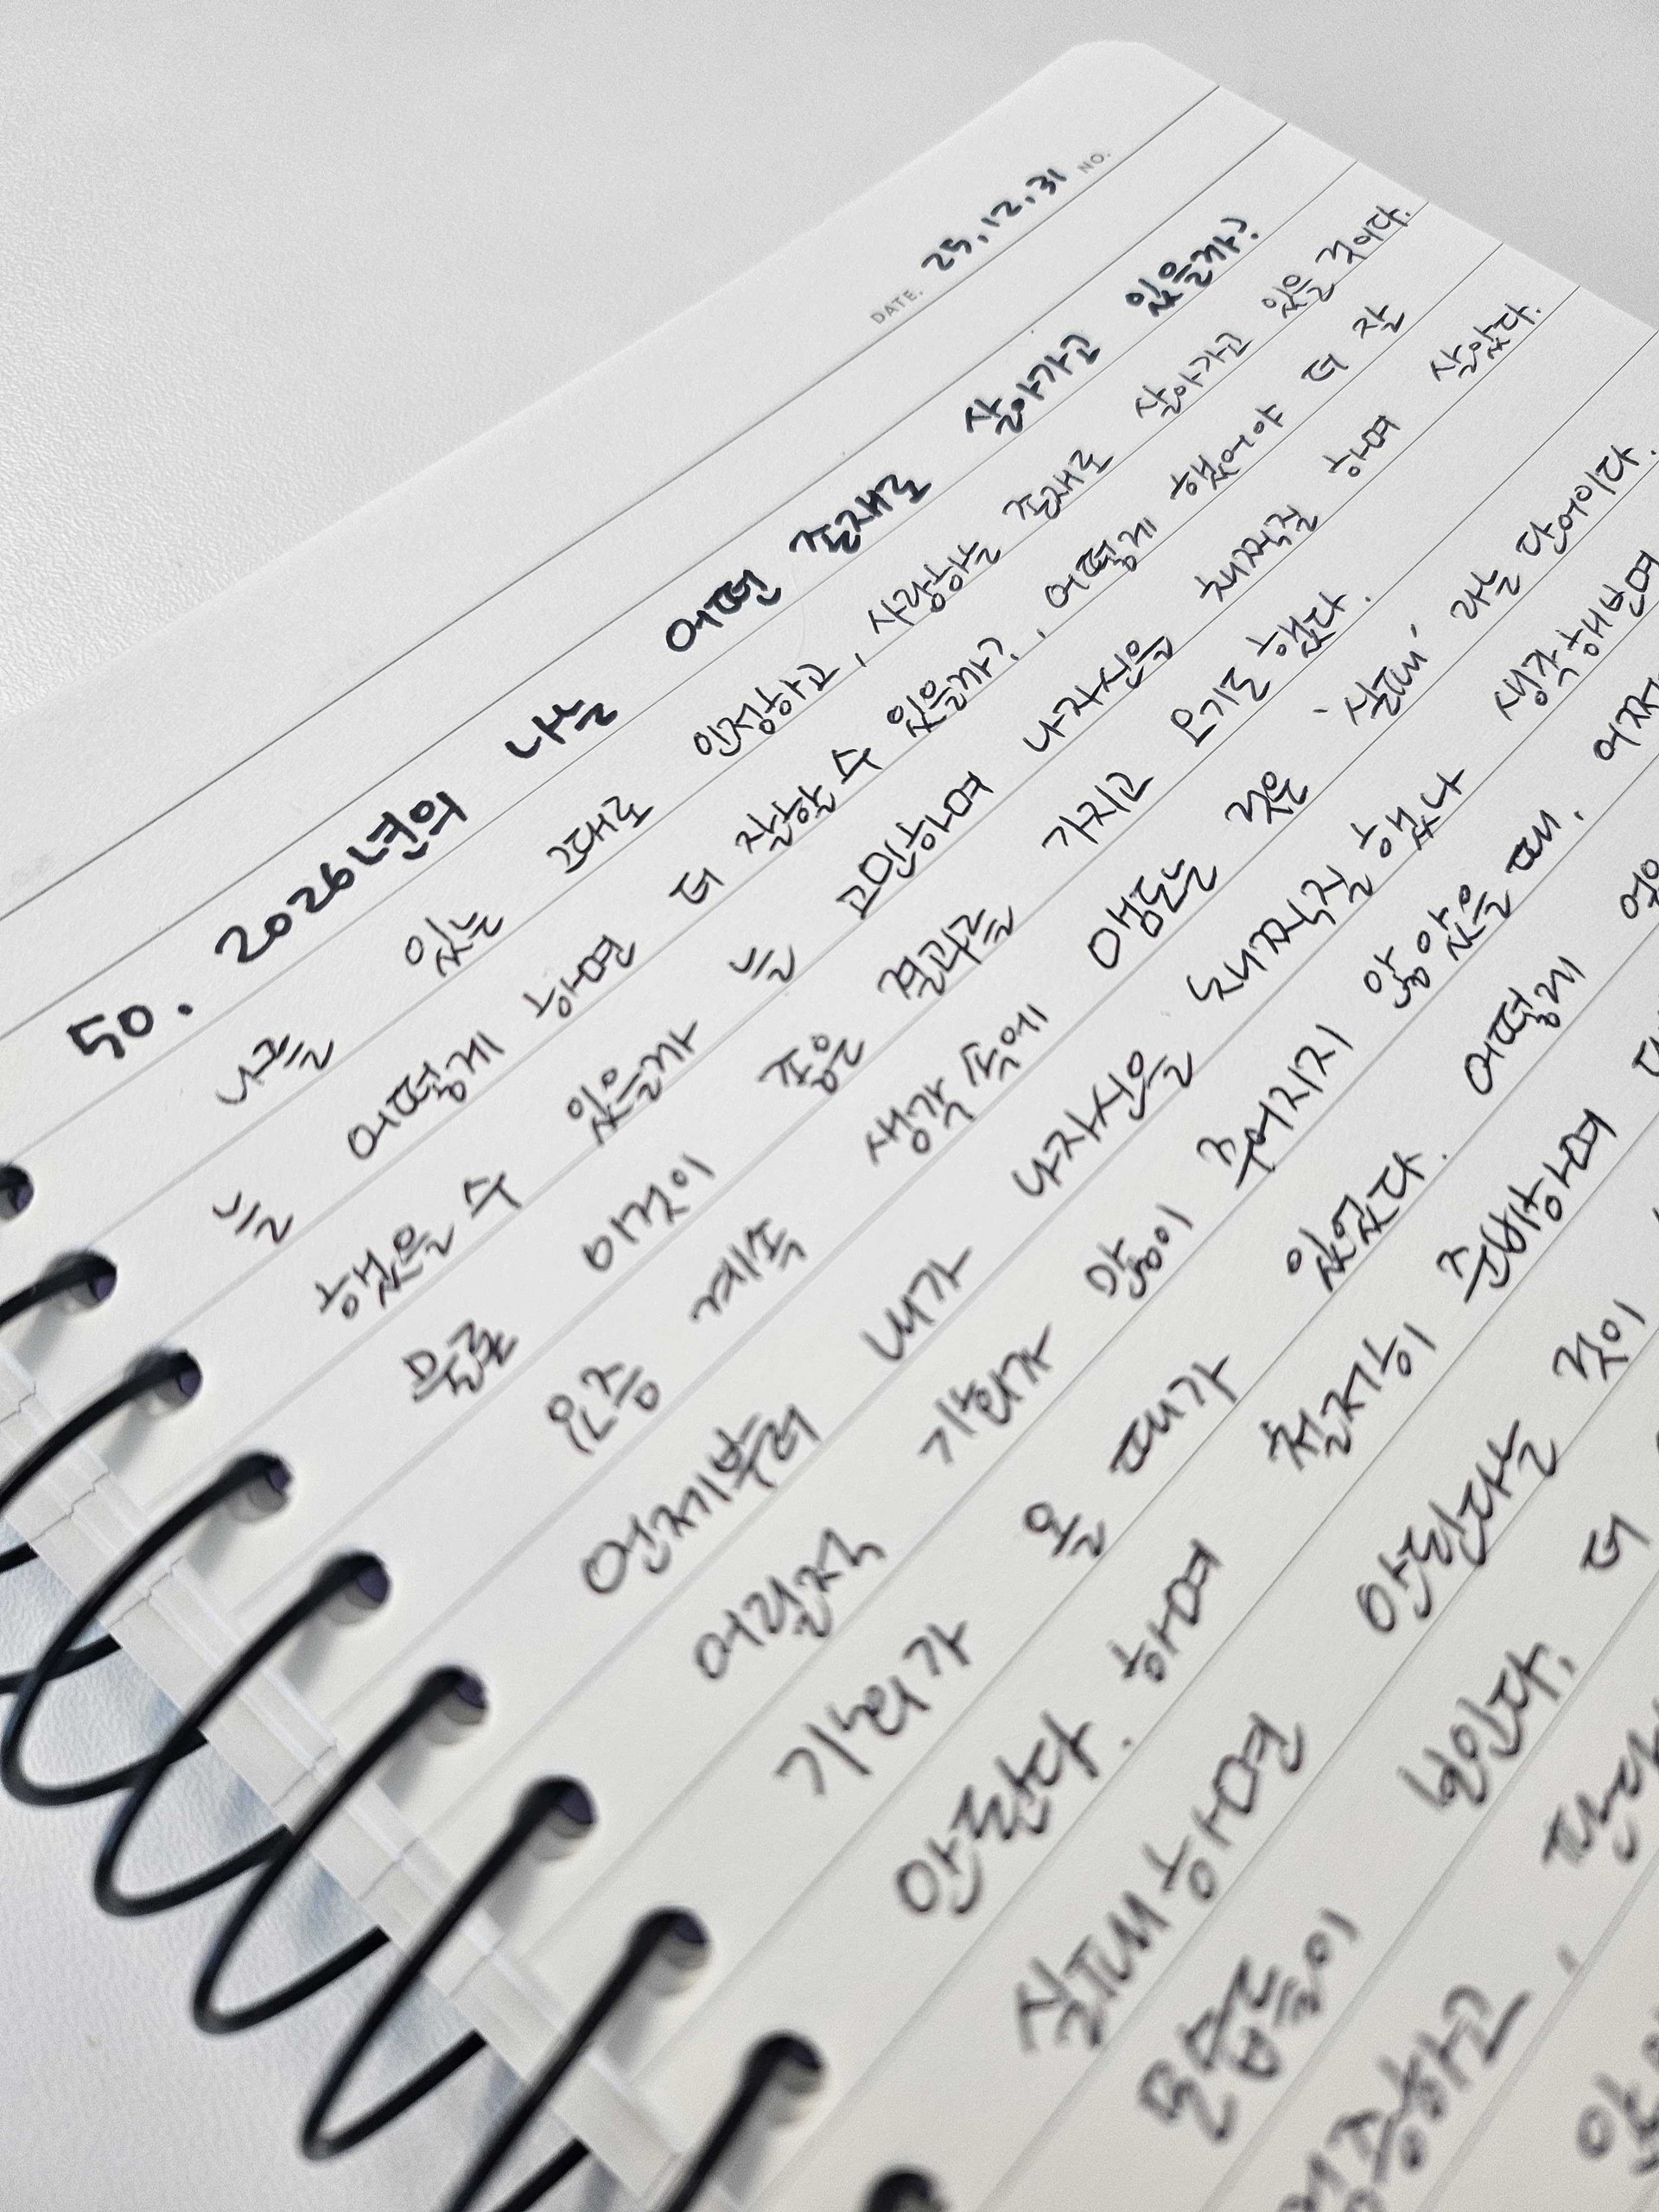 DATE. 25.12.31 NO.
50. 2026년의 나는 어떤 존재로 살아가고 있을까?
나를 있는 그대로 인정하고, 사랑하는 존재로 살아가고 있을 것이다.
늘 어떻게 하면 더 잘할 수 있을까?, 어떻게 했어야 더 잘
했을 수 있을까 늘 고민하며 나 자신을 채찍질 하며 살았다.
물론 이것이 좋은 결과를 가지고 오기도 했다.
요즘 계속 생각 속에 맴도는 것은 '실패' 라는 단어이다.
언제부터 내가 나 자신을 채찍질 했나 생각해보면
어릴적 기회가 많이 주어지지 않았을 때, 어쩌
기회가 올 때가 있었다. 어떻게
안된다. 하며 철저히 준비하며
실패하면 안된다는 것이
모습들이 보인다. 더